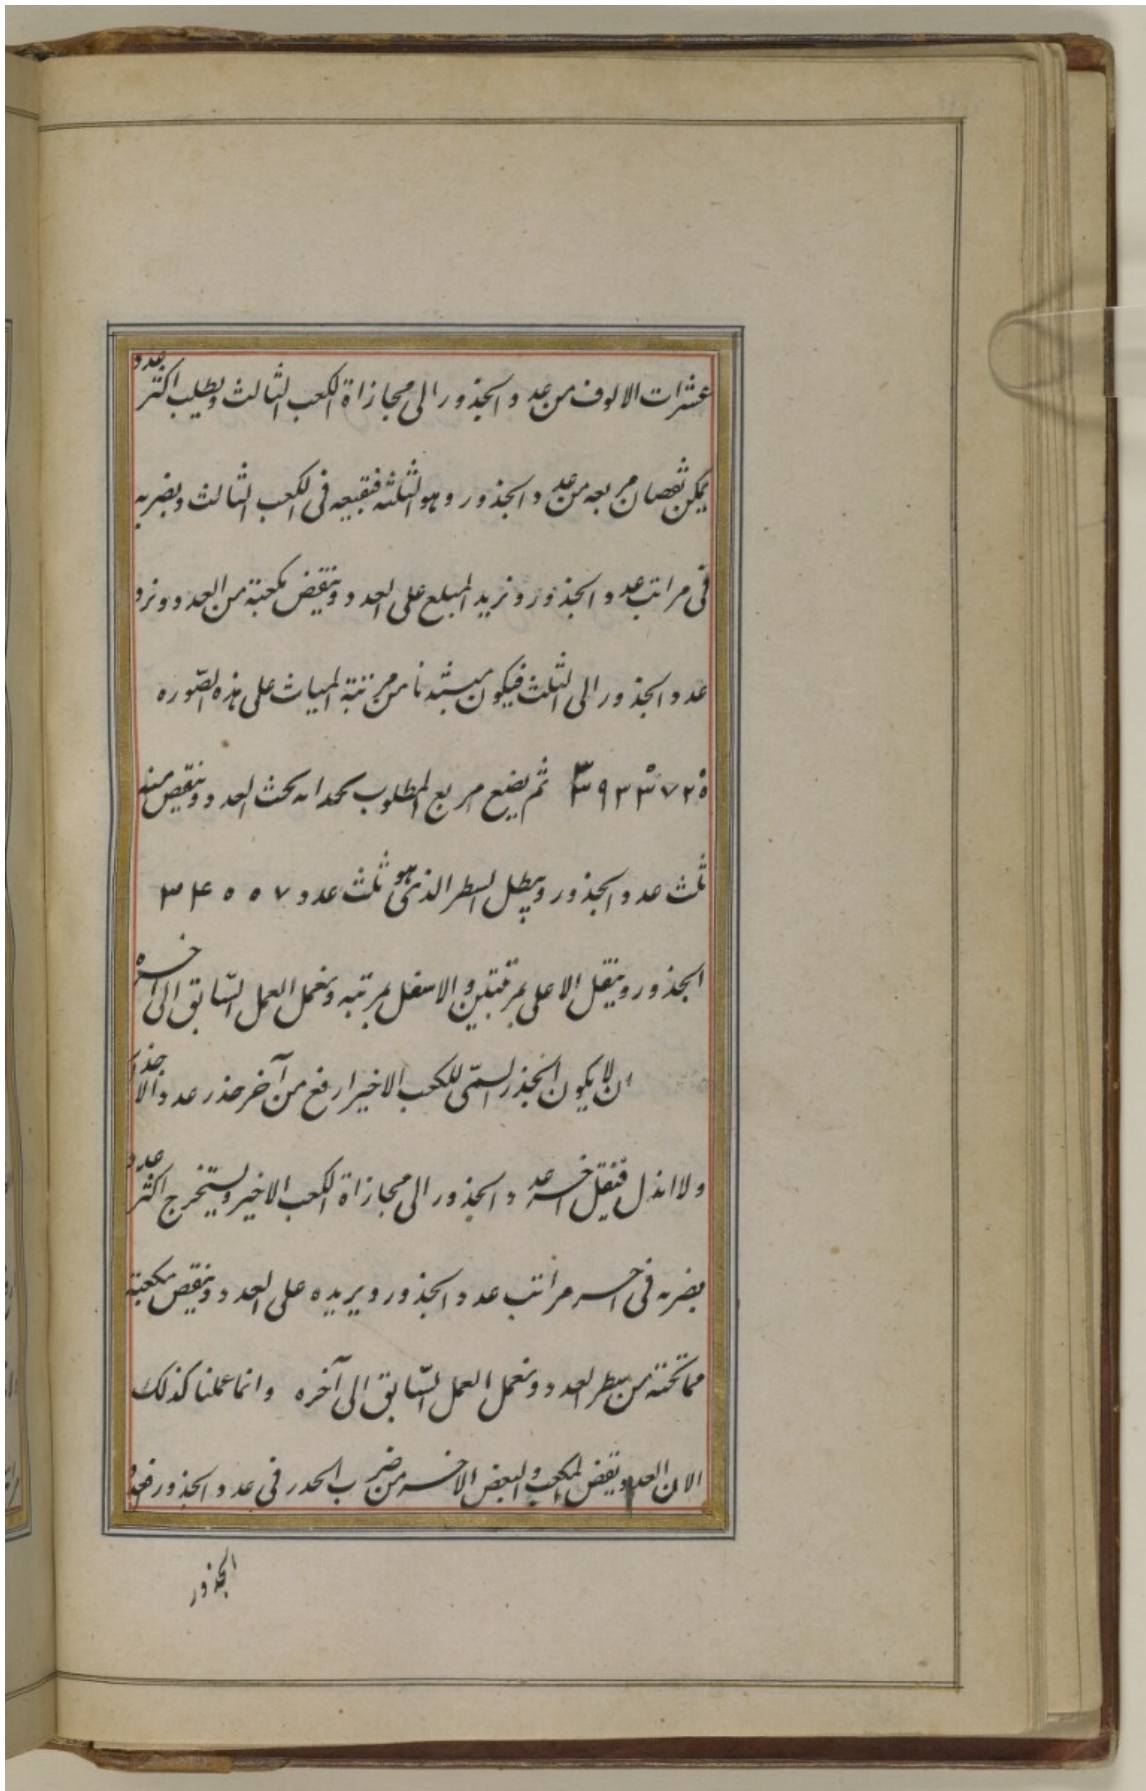 عشرات الالوف من عدد الجذور الى مجازاة الكعب الثالث ويطلب اكثر عدد
يمكن نقصان مربعه من عدد الجذور وهو الثلثه فيقيعه فى الكعب الثالث ويضربه
فى مراتب عدد الجذور ونزيد المبلع على العدد وينقض مكعبته من العدد ونرد
عدد الجذور الى الثلث فيكون مبتدئا من مرتبة الميات على هذه الصّوره
٣٩٣٣٧٢٥ ثم يضع مربع المطلوب بحداىه تحث العدد وينقص منه
ثلث عدد الجذور ويبطل السطر الذى هو ثلث عدد ٣٤٥٥٧
الجذور وينقل الاعلى بمرتبتين والاسفل بمرتبه ونعمل العمل السّابق الى اخره
ان لا يكون الجذر السمّى للكعب الاخير ارفع من آخر جذر عدد الا جذر
ولا انذل فننقل اخر عدد الجذور الى مجازاة الكعب الاخير ويستخرج اكثر عدد
بضربه فى اخر مراتب عدد الجذور ويريده على العدد وينقص مكعبته
مما تحته من سطر العدد ونعمل العمل السّابق الى آخره وانما عملنا كذلك
الان العدد ينقض المكعب والبعض الاخر من ضرب الجدر فى عدد الجذور فعدد
الجذور